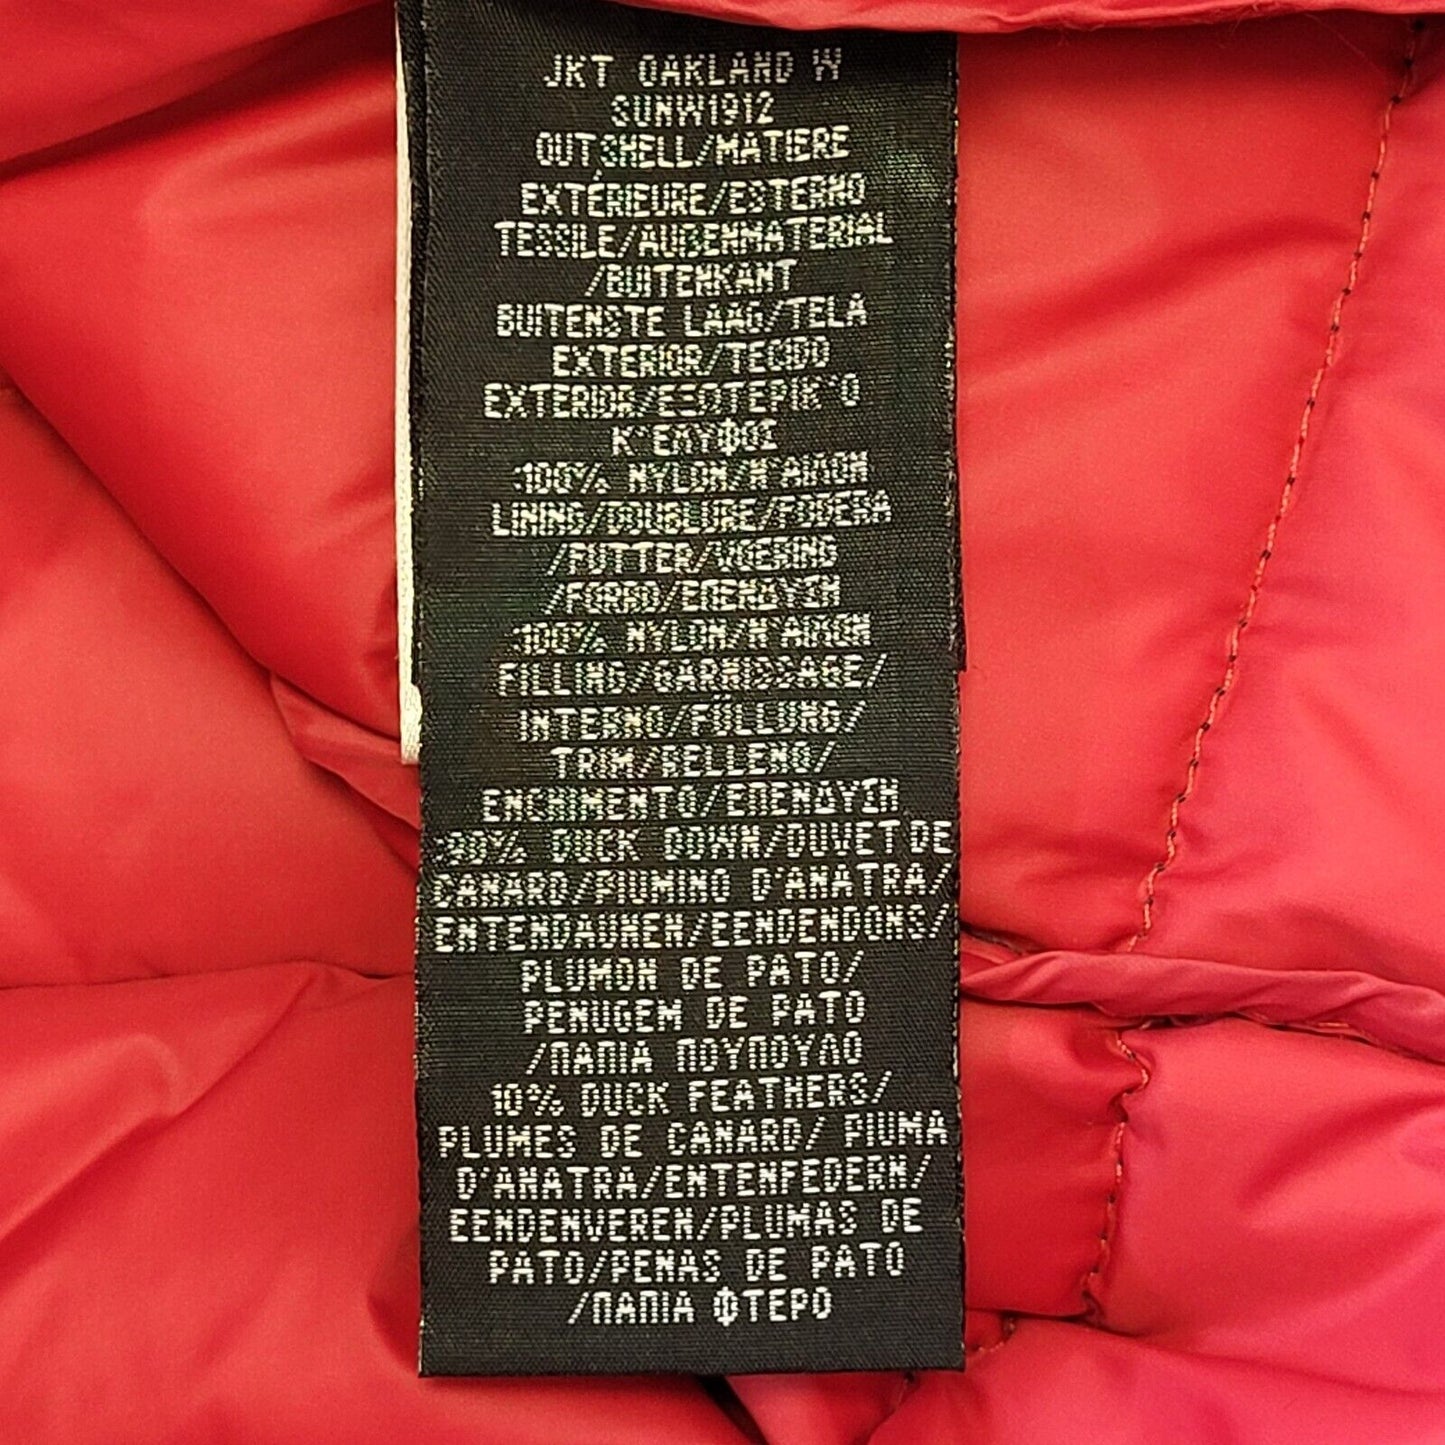 JKT OAKLAND W
SUNW1912
OUTSHELL/MATIERE
EXTÉRIEURE/ESTERNO
TESSILE/AUßENMATERIAL
/BUITENKANT
BUITENSTE LAAG/TELA
EXTERIOR/TECIDO
EXTERIOR/ΕΞΩΤΕΡΙΚ"Ο
Κ"ΕΛΥΦΟΣ
:100% NYLON/Ν"ΑΙΛΟΝ
LINING/DOUBLURE/FODERA
/FUTTER/VOERING
/FORRO/ΕΠΕΝΔΥΣΗ
:100% NYLON/Ν"ΑΙΛΟΝ
FILLING/GARNISSAGE/
INTERNO/FÜLLUNG/
TRIM/RELLENO/
ENCHIMENTO/ΕΠΕΝΔΥΣΗ
:90% DUCK DOWN/DUVET DE
CANARD/PIUMINO D'ANATRA/
ENTENDAUNEN/EENDENDONS/
PLUMON DE PATO/
PENUGEM DE PATO
/ΠΑΠΙΑ ΠΟΥΠΟΥΛΟ
10% DUCK FEATHERS/
PLUMES DE CANARD/ PIUMA
D'ANATRA/ENTENFEDERN/
EENDENVEREN/PLUMAS DE
PATO/PENAS DE PATO
/ΠΑΠΙΑ ΦΤΕΡΟ